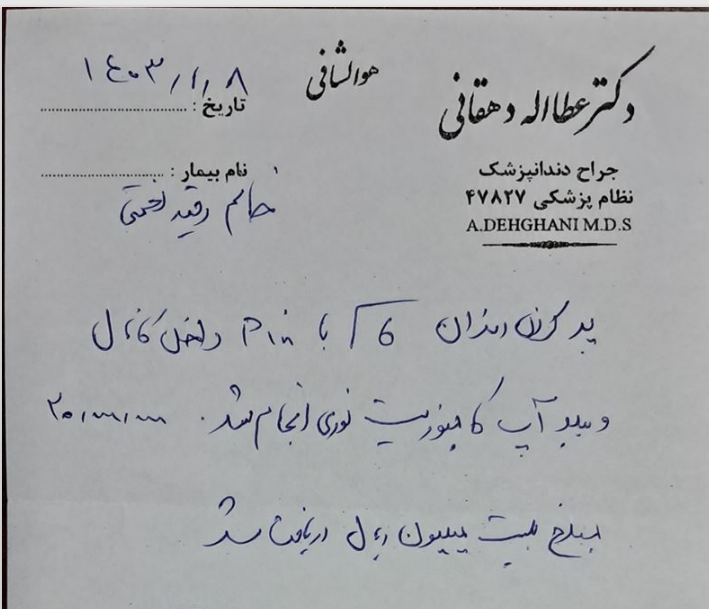 هوالشافی
دکتر عطااله دهقانی
جراح دندانپزشک
نظام پزشکی ۴۷۸۲۷
A.DEHGHANI M.D.S
تاریخ : ۱۴۰۳/۱/۸
نام بیمار :
خانم رقیه نعمتی
پر کردن دندان 6 با Pin داخل کانال
و بیلد آپ کامپوزیت نوری انجام شد. ۲۰,۰۰۰,۰۰۰
مبلغ بیست میلیون ریال دریافت شد